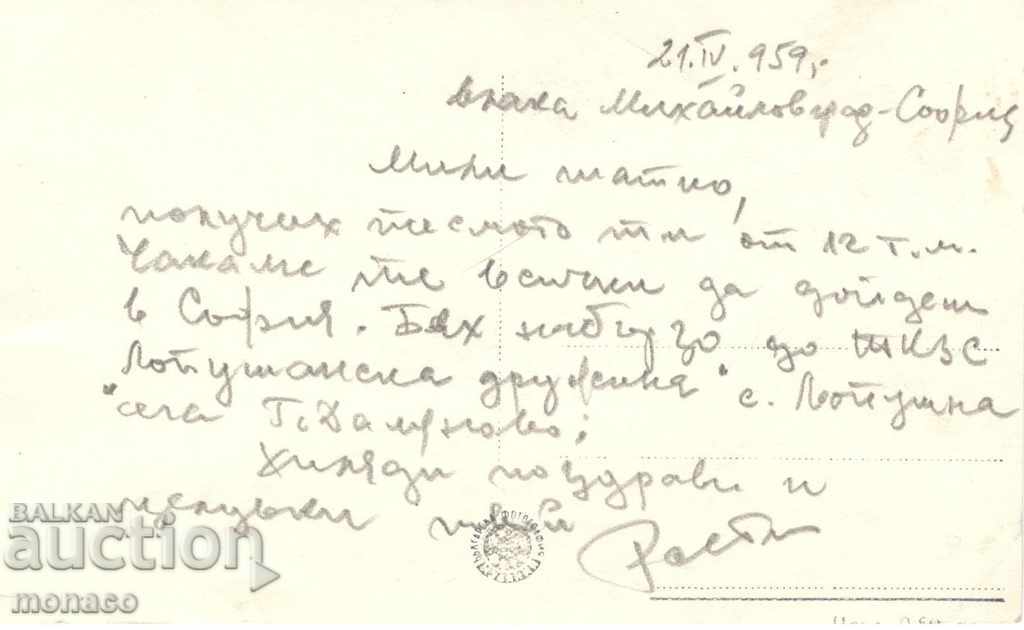 21.IV.959,
влака Михайловград-София
Мили татко,
получих писмото ти от 12 т.м.
Чакаме те всички да дойдеш
в София. Бях набързо до ТКЗС
"Лопушанска дружина" с. Лопушна
сега Г. Дамяново;
Хиляди поздрави и
целувки
БЪЛГАРСКА ФОТОГРАФИЯ
BALKAN
auction
monaco